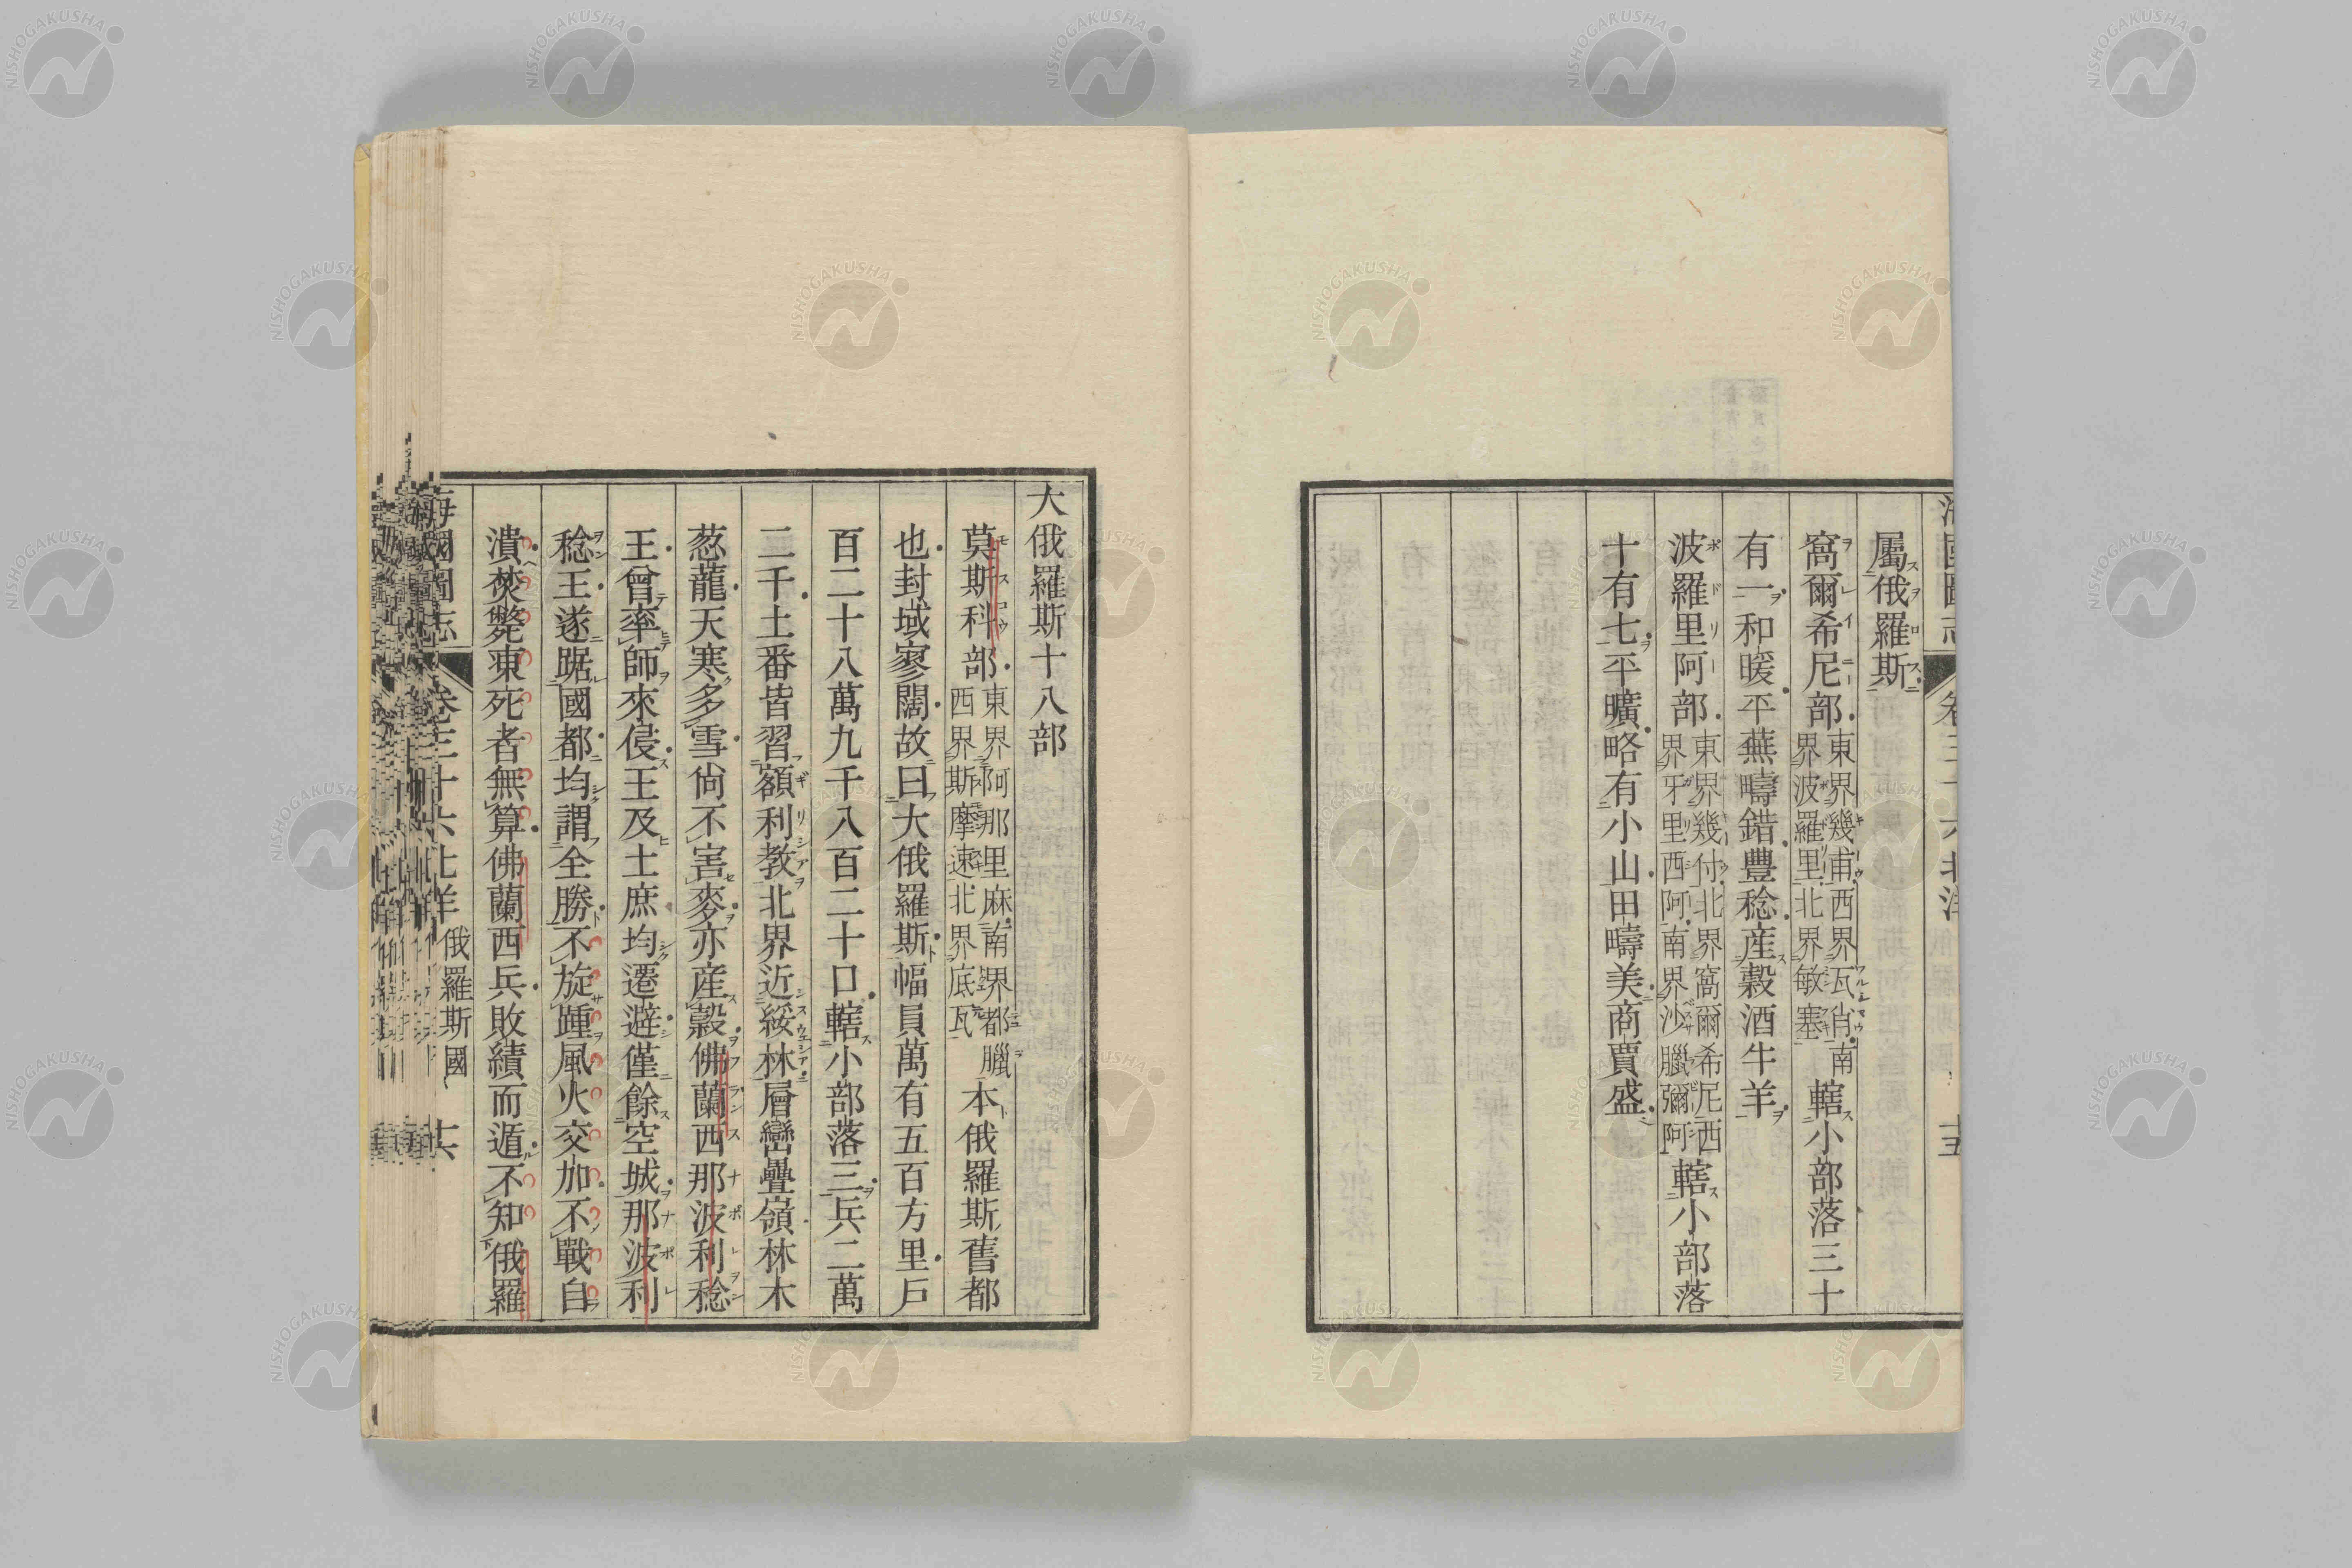 屬俄羅斯
窩爾希尼部東界幾甫西界瓦肖南界波羅里北界敏塞轄小部落三十
有一和暖平蕪疇錯豐稔産穀酒牛羊
波羅里阿部東界幾付北界窩爾希尼西界牙里西阿南界沙臘彌阿轄小部落
十有七平曠略有小山田疇美商賈盛
大俄羅斯十八部
莫斯科部東界阿那里麻南界都臘西界斯摩速北界底瓦本俄羅斯舊都
也封域寥闊故曰大俄羅斯幅員萬有五百方里戸
百二十八萬九千八百二十口轄小部落三兵二萬
二千土番皆習額利教北界近綏林層巒疊嶺林木
葱蘢天寒多雪尙不害麥亦産穀佛蘭西那波利稔
王曾率師來侵王及士庶均遷避僅餘空城那波利
稔王遂踞國都均謂全勝不旋踵風火交加不戰自
潰焚斃東死者無算佛蘭西兵敗績而遁不知俄羅
海國圖志 卷三十六北洋 俄羅斯國 十六
NISHOGAKUSHA